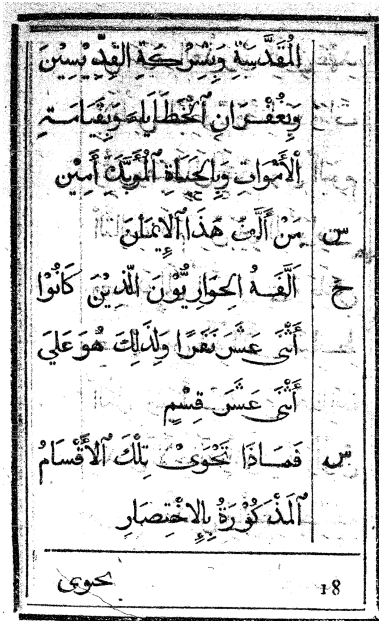 المُقَدَّسِةِ وَبِشِرْكَةِ القِدِّيْسِيْنَ
وَبِغُفْرَانِ ٱلْخَطَايَا وَبِقِيَامَةِ
ٱلْأَمْوَاتِ وَبِالحَيَاةِ ٱلْمُؤَبَّدَةِ أَمِيْن
س مَنْ أَلَّفَ هَذَا ٱلْإِيمَانَ
ج أَلَّفَهُ الحِوَارِيُّوْنَ الَّذِيْنَ كَانُوْا
أَثْنَى عَشَرَ نَفَرًا وَلِذَلِكَ هُوَ عَلَيَ
أَثْنَى عَشَرَ قِسْمٍ
س فَمَاذَا تَحْوَىْ تِلْكَ ٱلأَقْسَامُ
ٱلْمَذْكُوْرَةُ بِالِاخْتِصَارِ
18 يحوى